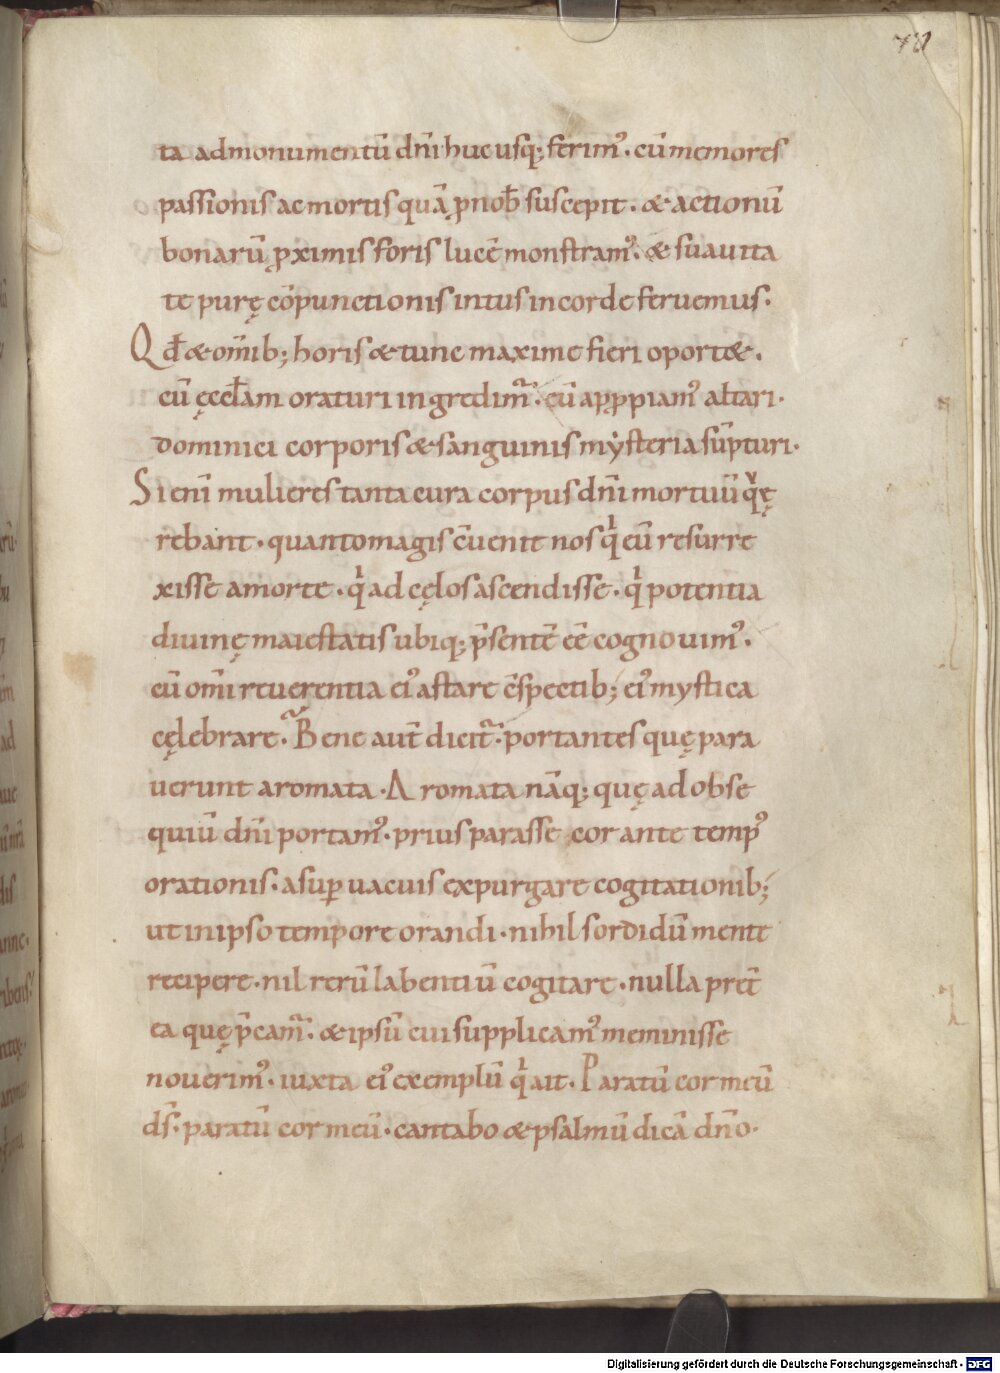 ta admonumentū dn̄i hucusq; ferim᾽. cū memores
passionis ac mortis quā ꝓ nob̄ suscepit. & actionū
bonarū ꝓximis foris lucē monstram᾽. & suauita
te purę cōpunctionis intus in corde feruemus.
Qđ & om̄ib; horis & tunc maxime fieri oport&.
cū ęccl̄am oraturi ingredimur̄. cū appꝓpiam᾽ altari.
dominici corporis & sanguinis mẏsteria sūpturi.
Si eni̅ mulieres tanta cura corpus dn̄i mortuū q̊rę
rebant. quanto magis c̄uenit nos qͥ eū resurre
xisse amorte. qͥ ad cęlos ascendisse. qͥ potentia
diuinę maiestatis ubiq; p̄sentē ēē cognouim᾽.
cū om̄i reuerentia ei᾽ astare c̄spectib; ei᾽ mystica
cęlebrare. Bene aut̄ dicit̄. portantes quę para
uerunt aromata. Aromata nāq; quę ad obse
quiū dn̄i portam᾽. prius parasse cor ante temp᾽
orationis. asuꝑuacuis expurgare cogitationib;
ut in ipso tempore orandi. nihil sordidū mente
recipere. nil rerū labentiū cogitare. nulla pret̄
ea quę p̄cam̄. & ipsū cui supplicam᾽ meminisse
nouerim᾽. iuxta ei᾽ exemplū qͥ ait. Paratū cor meū
ds̄. paratū cor meū. cantabo & psalmū dicā dn̄o.
Digitalisierung gefördert durch die Deutsche Forschungsgemeinschaft - DFG